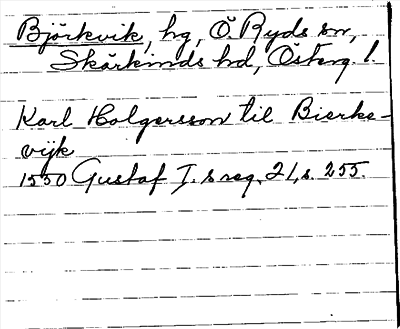 Björkvik, hg, Ö. Ryds sn,
Skärkinds hd, Österg. l.
Karl Holgersson til Bierke-
vijk
1550 Gustaf I.s reg. 21, s. 255.